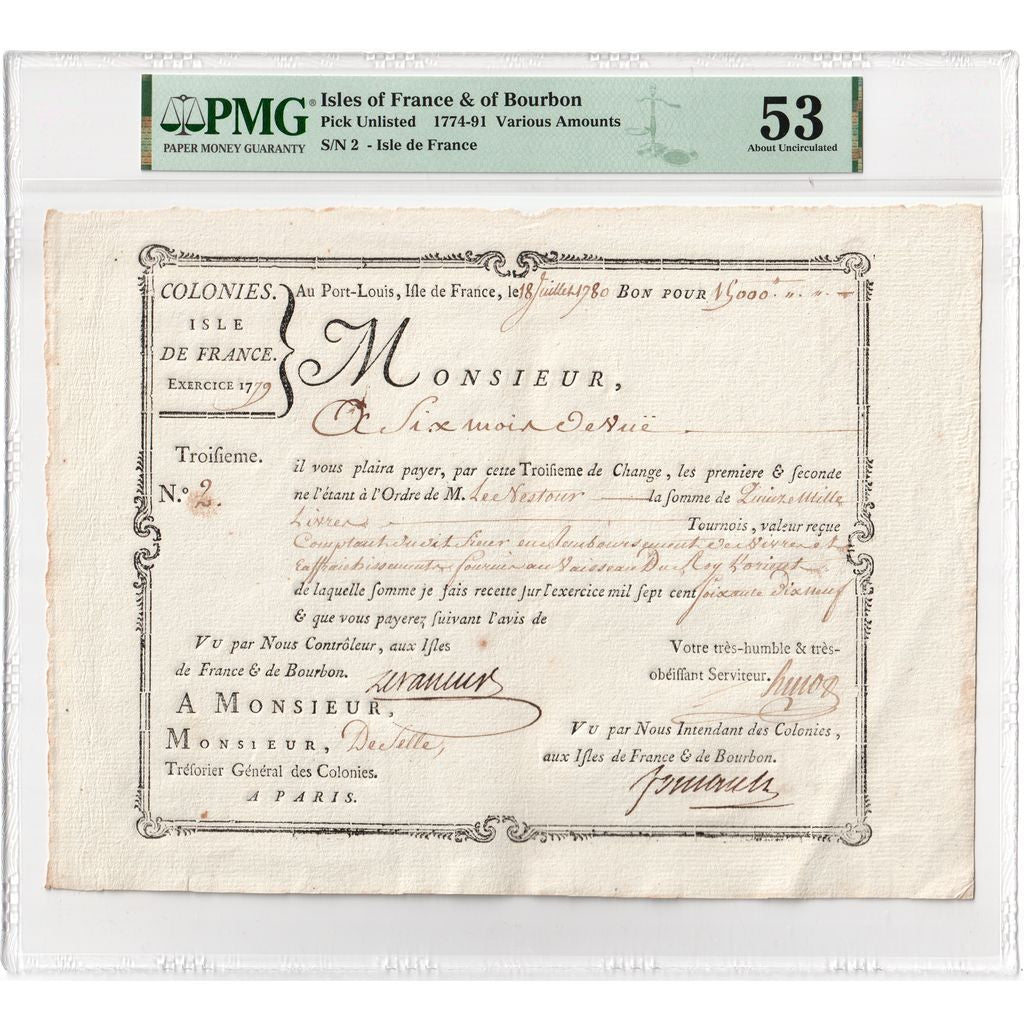 PMG®
PAPER MONEY GUARANTY
Isles of France & of Bourbon
Pick Unlisted 1774-91 Various Amounts
S/N 2 - Isle de France
53
About Uncirculated
COLONIES.
ISLE
DE FRANCE.
EXERCICE 1779
Au Port-Louis, Isle de France, le 18 Juillet 1780 BON POUR 15000
MONSIEUR,
A Six mois de vuë
Troisieme.
N.º 2.
il vous plaira payer, par cette Troisieme de Change, les premiere & seconde
ne l'étant à l'Ordre de M. Lee Nestour la somme de Quinze Mille
Livres Tournois, valeur reçue
Comptant dudit Sieur en remboursement de vivres et
raffraichissements fournis au Vaisseau Du Roy L'orient
de laquelle somme je fais recette sur l'exercice mil sept cent soixante dix neuf
& que vous payerez suivant l'avis de
VU par Nous Contrôleur, aux Isles
de France & de Bourbon.
Votre très-humble & très-
obéissant Serviteur.
A MONSIEUR,
MONSIEUR, De Selle,
Trésorier Général des Colonies.
A PARIS.
VU par Nous Intendant des Colonies,
aux Isles de France & de Bourbon.